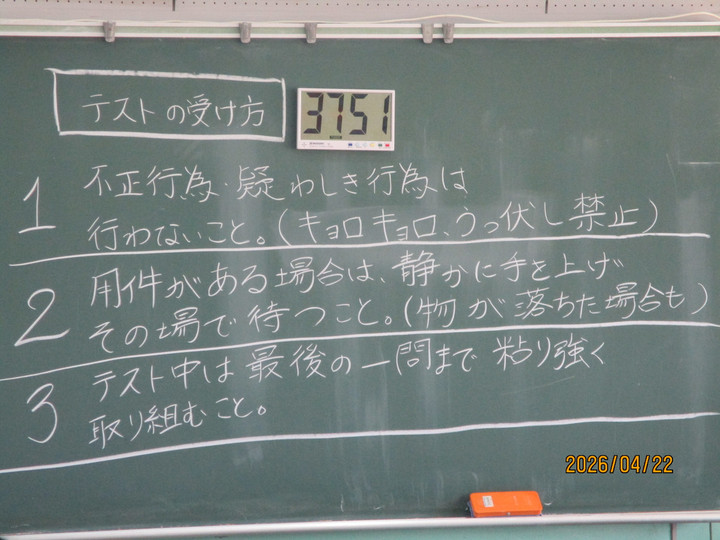 テストの受け方
3751
1 不正行為・疑わしき行為は
行わないこと。(キョロキョロ、うっ伏し禁止)
2 用件がある場合は、静かに手を上げ
その場で待つこと。(物が落ちた場合も)
3 テスト中は最後の一問まで粘り強く
取り組むこと。
2026/04/22